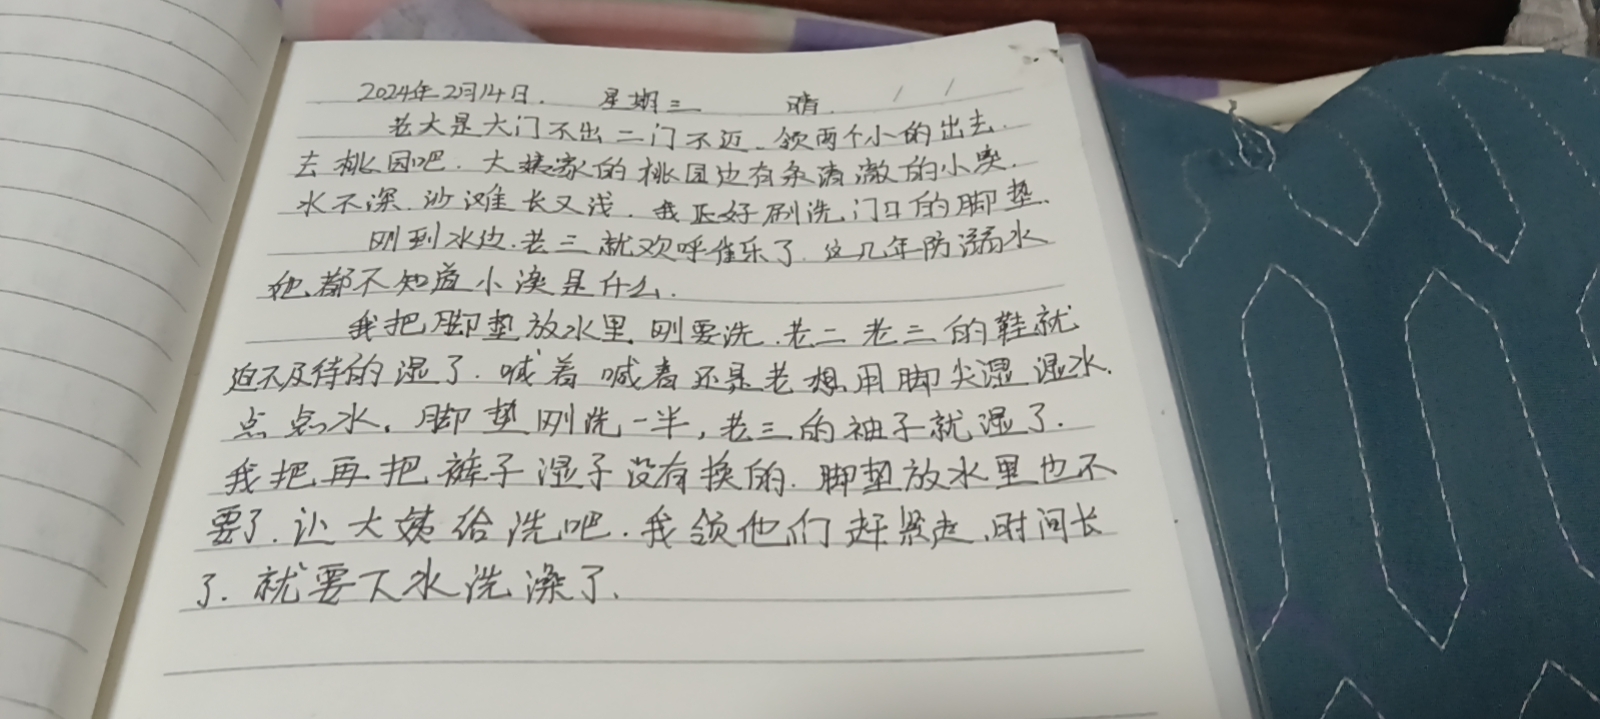 2024年2月14日. 星期三 晴. / /
老大是大门不出二门不迈. 领两个小的出去.
去桃园吧. 大姨家的桃园边有条清澈的小渠.
水不深. 沙滩长又浅. 我正好刷洗门口的脚垫.
刚到水边. 老三就欢呼雀乐了. 这几年防溺水
他都不知道小渠是什么.
我把脚垫放水里. 刚要洗. 老二老三的鞋就
迫不及待的湿了. 喊着喊着还是老想用脚尖湿湿水.
点点水. 脚垫刚洗一半, 老三的袖子就湿了.
我把再把裤子湿了没有换的. 脚垫放水里也不
要了. 让大姨给洗吧. 我领他们赶紧走. 时间长
了. 就要下水洗澡了.